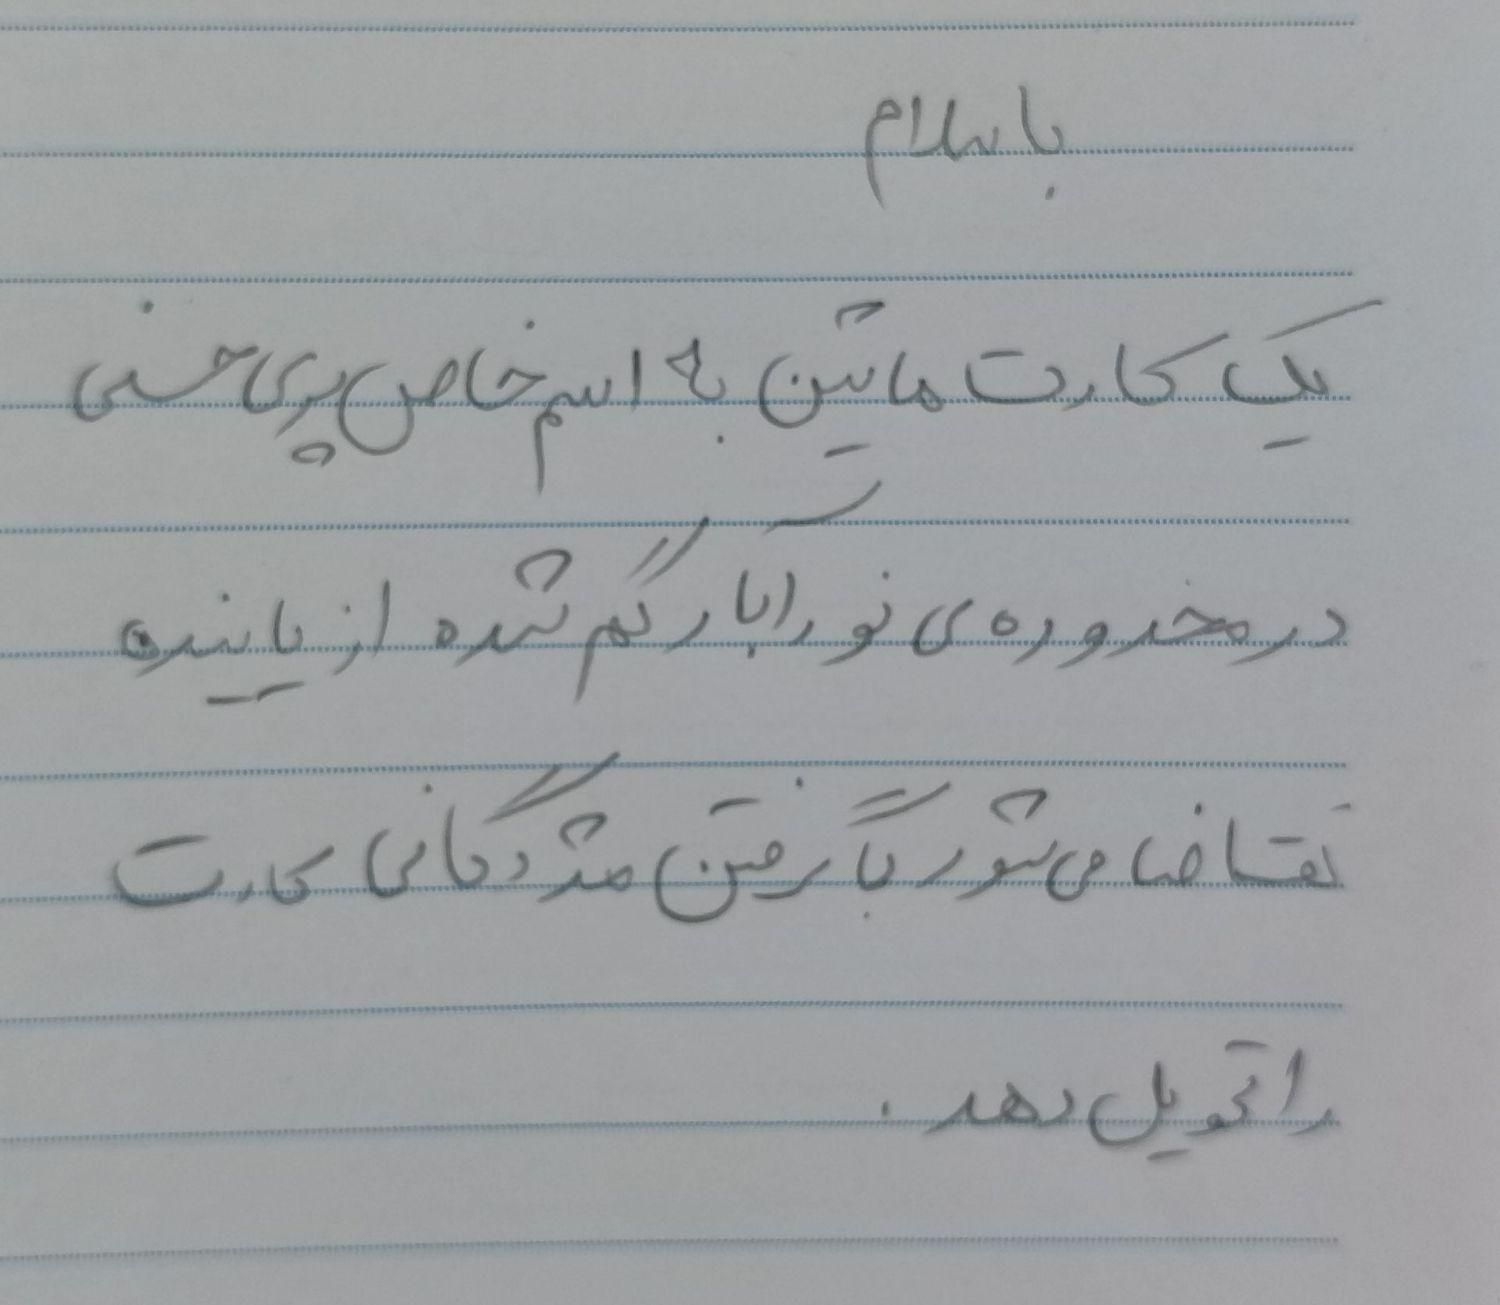 با سلام
یک کارت ماشین به اسم خاص پری حسنی
در محدوده‌ی نورآباد گم شده از یابنده
تقاضا می‌شود با گرفتن مژدگانی کارت
را تحویل دهد.